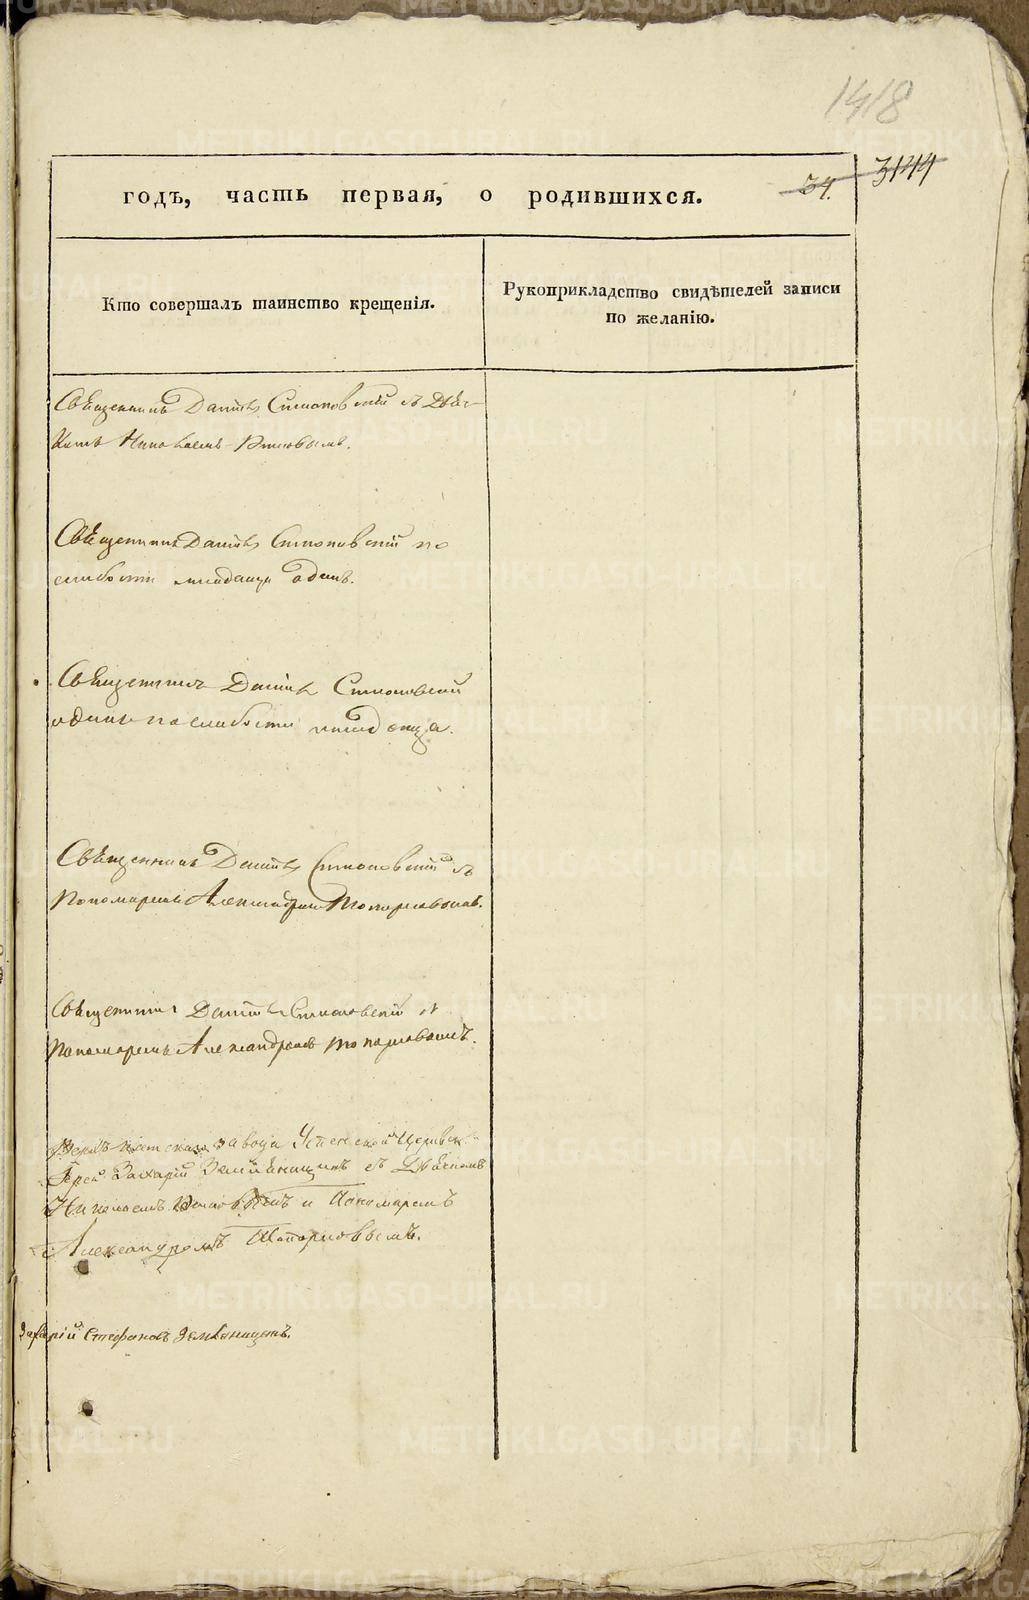 1418
годъ, часть первая, о родившихся.
34. 3144
Кто совершалъ таинство крещенія.
Рукоприкладство свидѣтелей записи
по желанію.
Священникъ Даніилъ Симоновскій съ Дья-
Николаемъ
Священникъ Даніилъ Симоновскій по
слабости младенца одинъ.
Священникъ Даніилъ Симоновскій
одинъ по слабости младенца.
Священникъ Даніилъ Симоновскій съ
Пономаремъ Александромъ Топорковымъ.
Священникъ Даніилъ Симоновскій съ
Пономаремъ Александромъ Топорковымъ.
завода Успенской Церкви
Іерей Захарій Земляницынъ съ Дьякономъ
Николаемъ и Пономаремъ
Александромъ Топорковымъ.
Захарій Стефановъ Земляницынъ.
METRIKI.GASO-URAL.RU